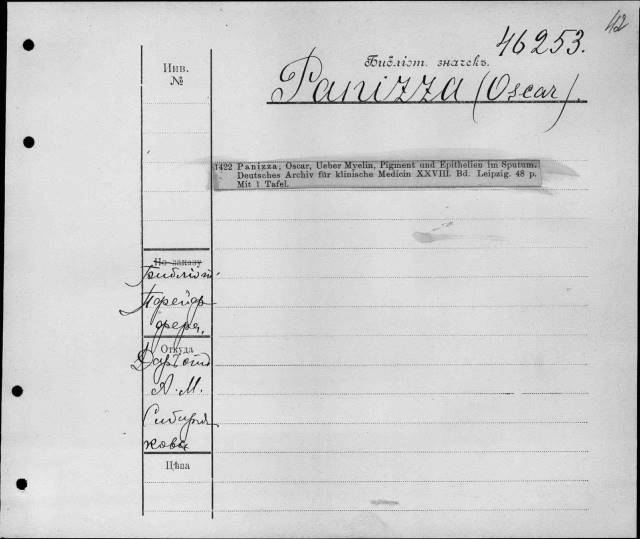 42
46253.
Инв.
№
Библіот. значекъ.
Panizza (Oscar).
1422 Panizza, Oscar, Ueber Myelin, Pigment und Epithelien im Sputum.
Deutsches Archiv für klinische Medicin XXVIII. Bd. Leipzig. 48 p.
Mit 1 Tafel.
По заказу
Библіот.
Пфейф
фера.
Откуда
Даръ
А. М.
Сибиря
кова
Цѣна